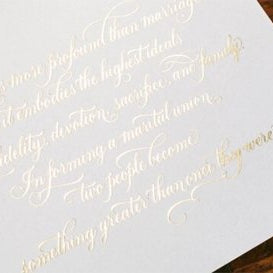 is more profound than marriage
it embodies the highest ideals
fidelity, devotion, sacrifice, and family.
In forming a marital union,
two people become
something greater than once they were